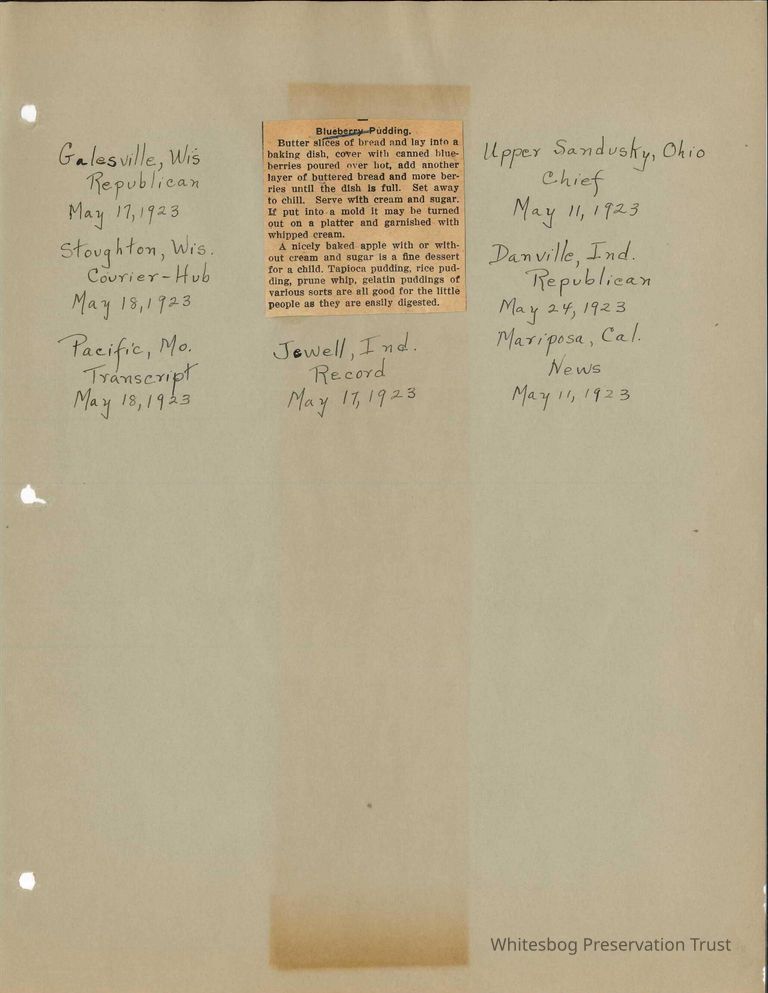 Galesville, Wis
Republican
May 17, 1923
Stoughton, Wis.
Courier-Hub
May 18, 1923
Pacific, Mo.
Transcript
May 18, 1923
Blueberry Pudding.
Butter slices of bread and lay into a
baking dish, cover with canned blue-
berries poured over hot, add another
layer of buttered bread and more ber-
ries until the dish is full. Set away
to chill. Serve with cream and sugar.
If put into a mold it may be turned
out on a platter and garnished with
whipped cream.
A nicely baked apple with or with-
out cream and sugar is a fine dessert
for a child. Tapioca pudding, rice pud-
ding, prune whip, gelatin puddings of
various sorts are all good for the little
people as they are easily digested.
Jewell, Ind.
Record
May 17, 1923
Upper Sandusky, Ohio
Chief
May 11, 1923
Danville, Ind.
Republican
May 24, 1923
Mariposa, Cal.
News
May 11, 1923
Whitesbog Preservation Trust